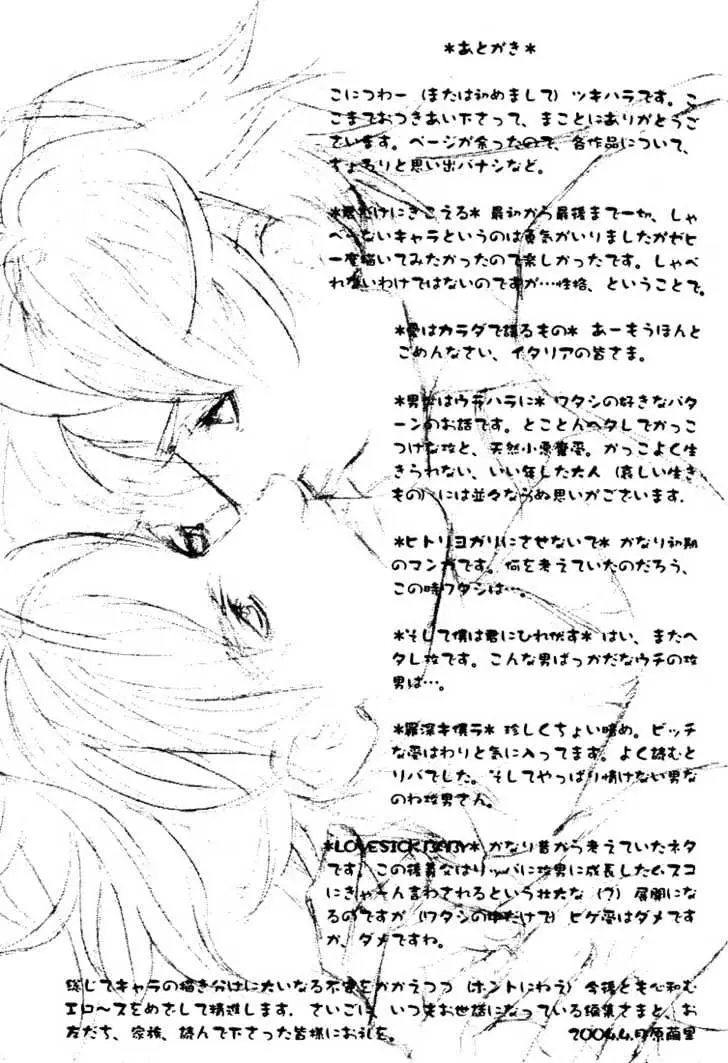 *あとがき*
こにつわー（または初めまして）ツキハラです。こ
こまでおつきあい下さって、まことにありがとうご
ざいます。ページが余ったので、各作品について、
ちょろりと思い出バナシなど。
*君だけにきこえる* 最初から最後まで一切、しゃ
べらないキャラというのは勇気がいりましたがゼヒ
一度描いてみたかったので楽しかったです。しゃべ
れないわけではないのですが…性格、ということで。
*愛はカラダで語るもの* あーもうほんと
ごめんなさい、イタリアの皆さま。
*男はウラハラに* ワタシの好きなパタ
ーンのお話です。とことんヘタレでかっこ
つけな攻と、天然小悪魔受。かっこよく生
きられない、いい年した大人（哀しい生き
もの）には並々ならぬ思いがございます.
*ヒトリヨガリにさせないで* かなり初期
のマンガです。何を考えていたのだろう、
この時ワタシは…。
*そして僕は君にひれふす* はい、またヘ
タレ攻です。こんな男ばっかだなウチの攻
男は…。
*罪深キ僕ラ* 珍しくちょい暗め。ビッチ
な受はわりと気に入ってます。よく読むと
リバでした。そしてやっぱり情けない男な
のね攻男さん。
*LOVESICK BABY* かなり昔から考えていたネタ
です。この後義父はリッパに攻男に成長したムスコ
にきゃん言わされるという壮大な（？）展開にな
るのですが（ワタシの中だけで）ヒゲ受はダメです
か、ダメですね。
総じてキャラの描き分けに大いなる不安をかかえつつ（ホントにねえ）今後とも心和む
エロ〜スをめざして精進します.さいごに、いつもお世話になっている編集さまと、お
友だち、家族、読んで下さった皆様にお礼を。 2004.4.月原繭里